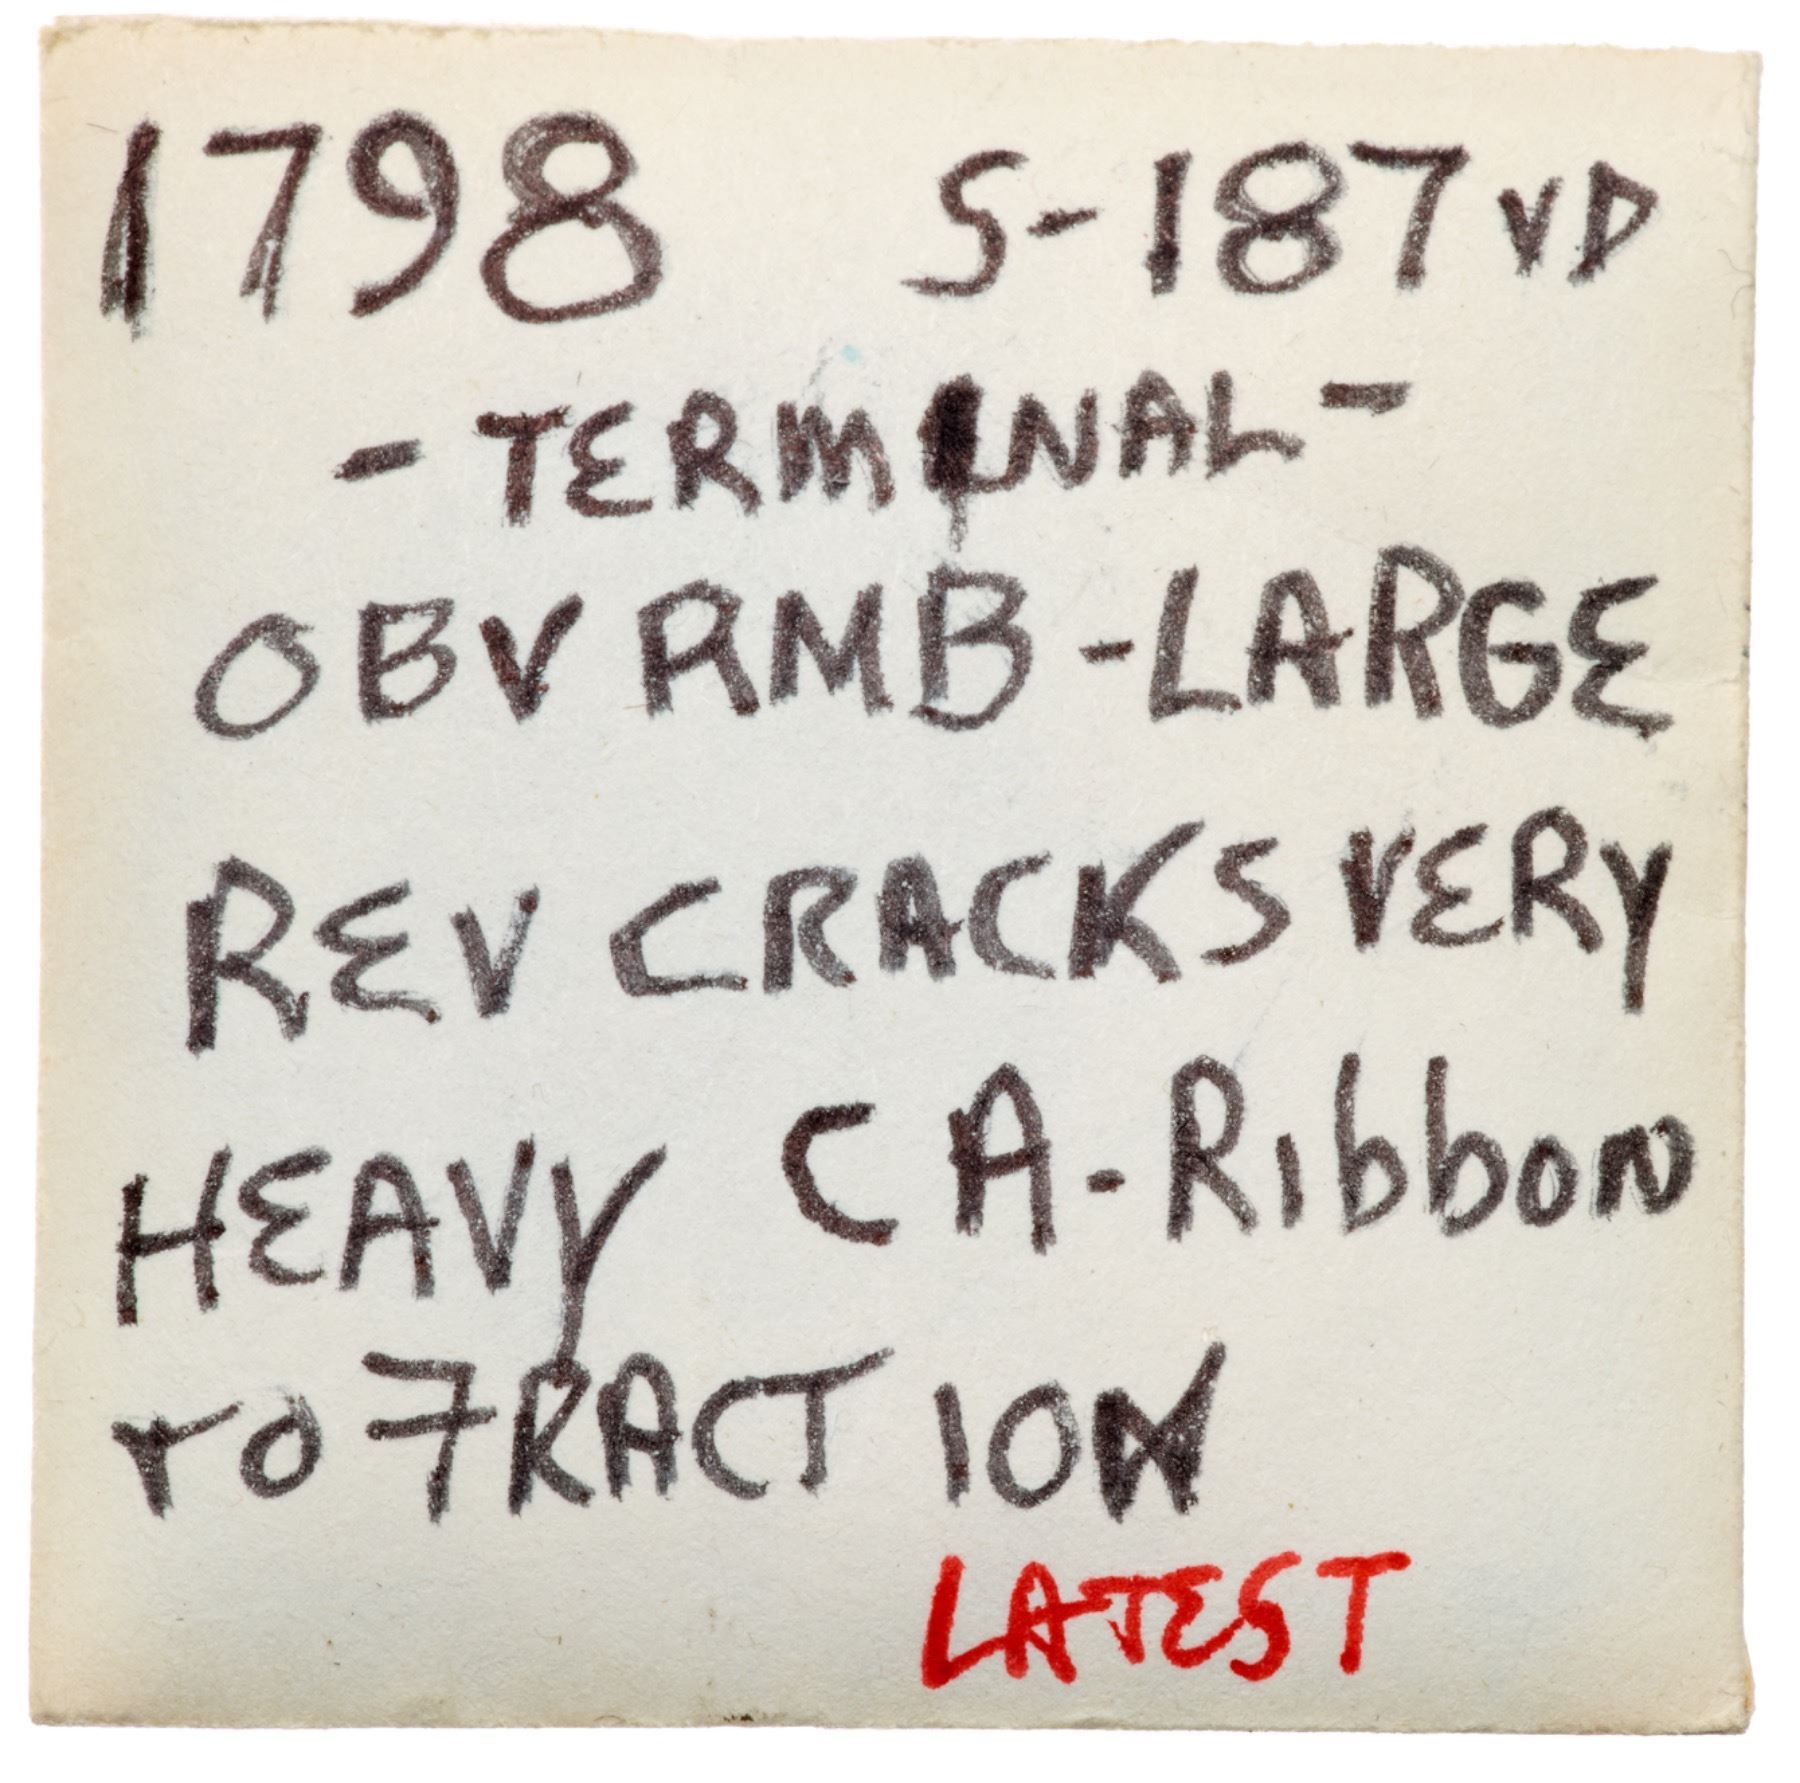 1798 S-187 VD
- TERMINAL -
OBV RMB - LARGE
REV CRACKS VERY
HEAVY CA-Ribbon
TO FRACTION
LATEST